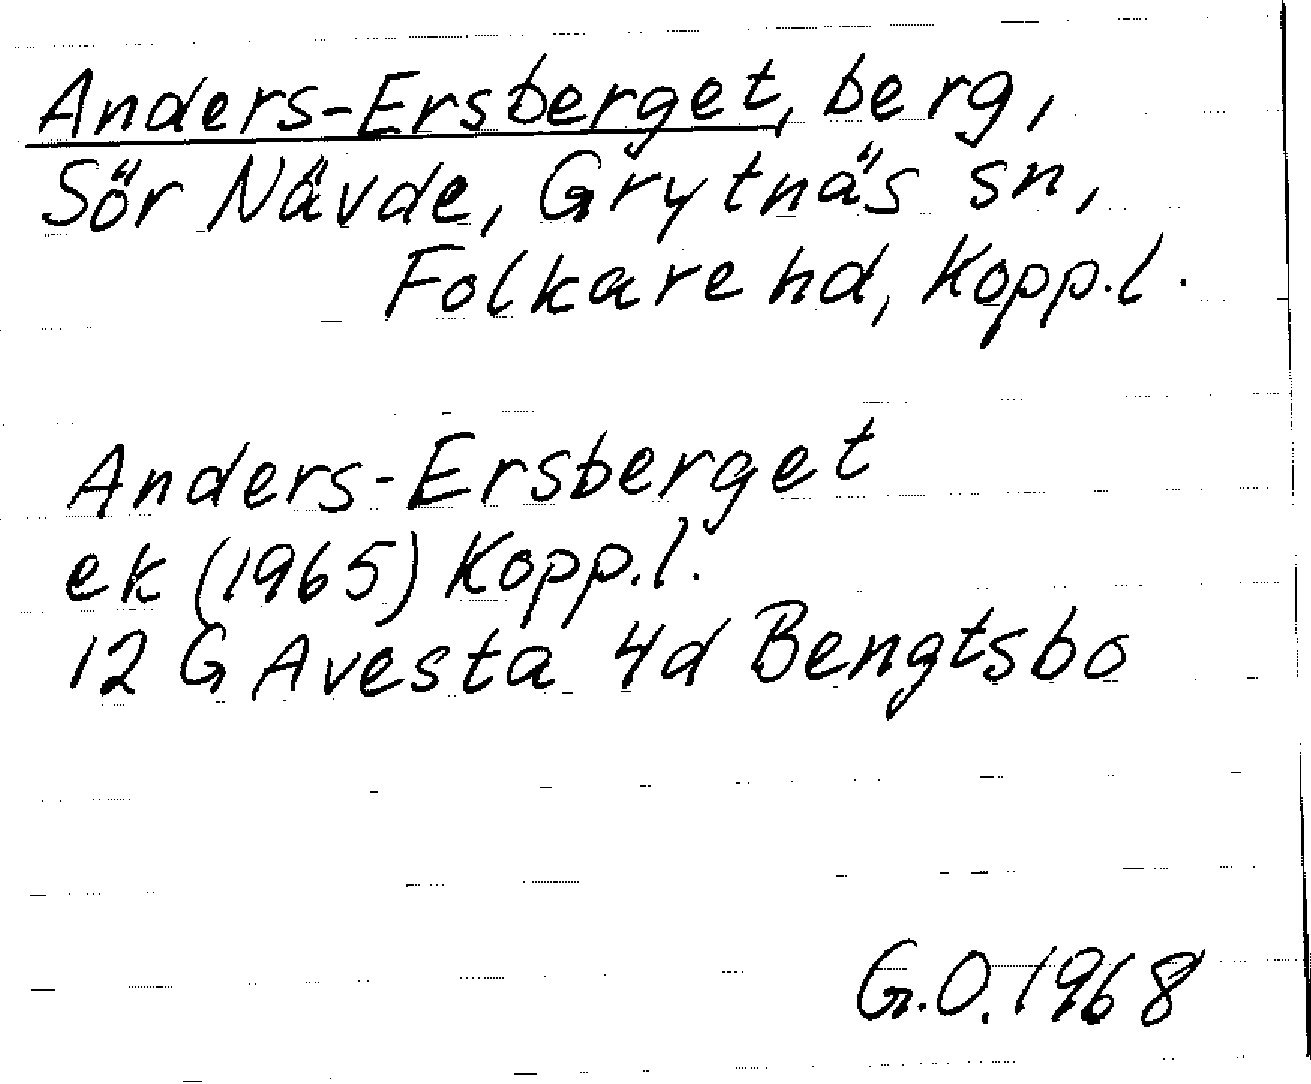 Anders-Ersberget, berg,
Sör Nävde, Grytnäs sn,
Folkare hd, Kopp.l.
Anders-Ersberget
ek (1965) Kopp.l.
12 G Avesta 4d Bengtsbo
G.O. 1968